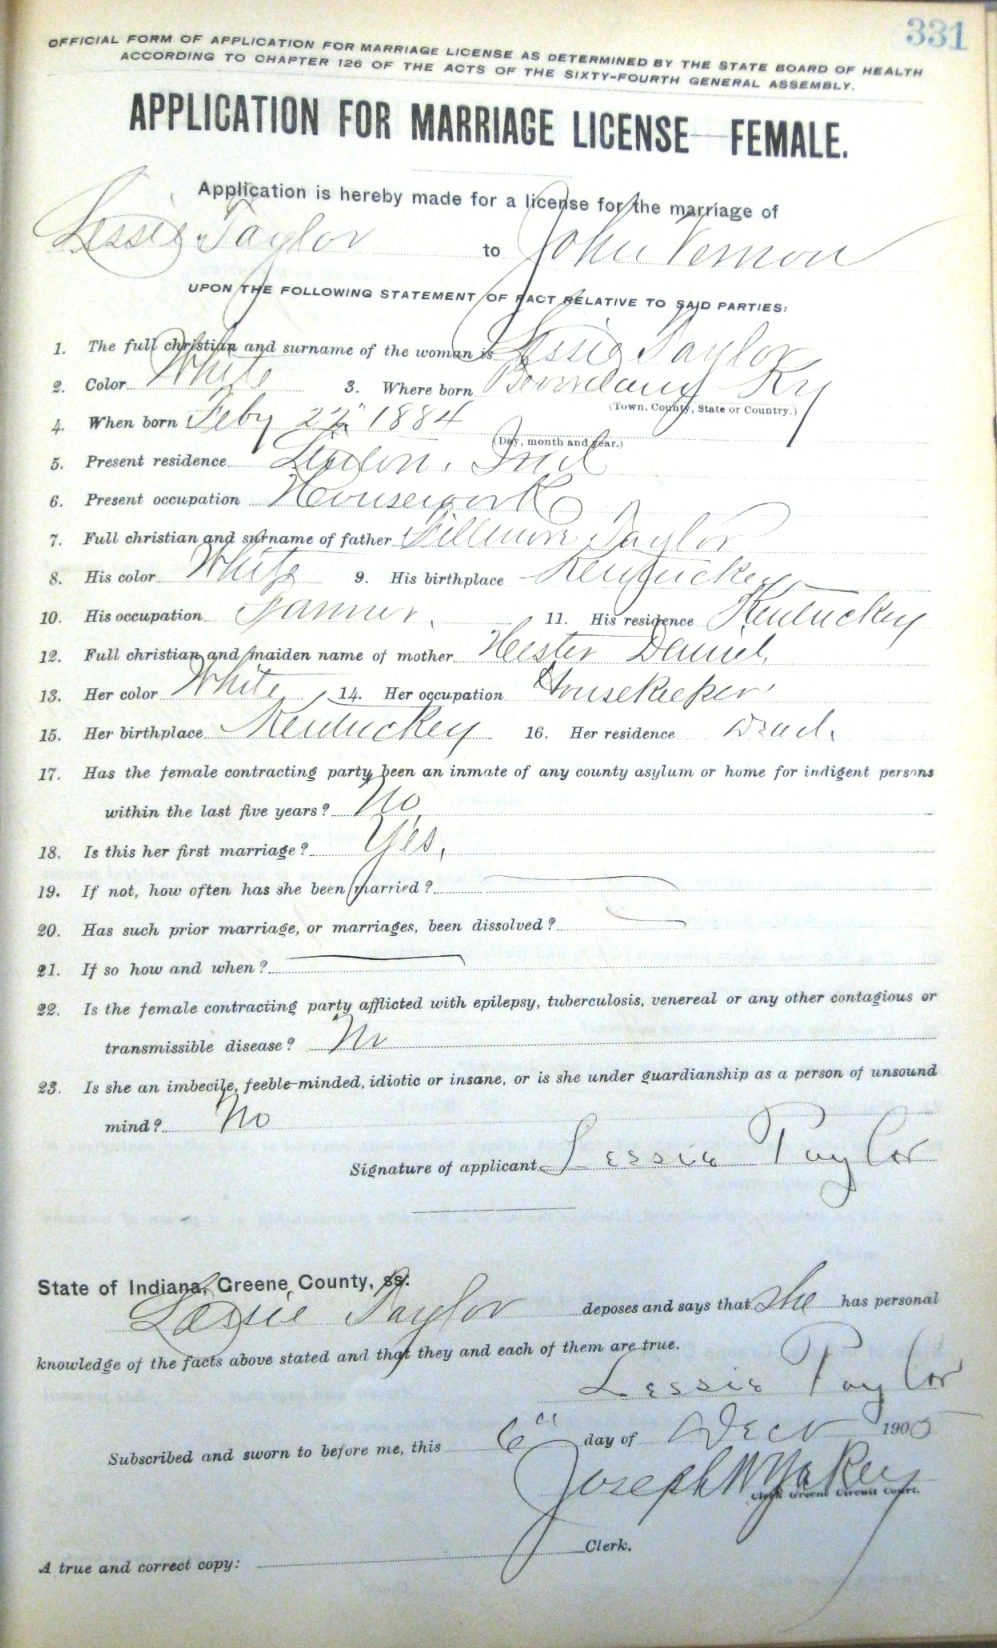 331
OFFICIAL FORM OF APPLICATION FOR MARRIAGE LICENSE AS DETERMINED BY THE STATE BOARD OF HEALTH
ACCORDING TO CHAPTER 126 OF THE ACTS OF THE SIXTY-FOURTH GENERAL ASSEMBLY.
APPLICATION FOR MARRIAGE LICENSE—FEMALE.
Application is hereby made for a license for the marriage of
Lessie Taylor to John Vernon
UPON THE FOLLOWING STATEMENT OF FACT RELATIVE TO SAID PARTIES:
1. The full christian and surname of the woman is Lessie Taylor
2. Color White 3. Where born Ky
(Town, County, State or Country.)
4. When born Feby 22" 1884
(Day, month and year.)
5. Present residence Linton, Ind
6. Present occupation Housework
7. Full christian and surname of father Fillmore Taylor
8. His color White 9. His birthplace Kentuckey
10. His occupation Farmer. 11. His residence Kentuckey
12. Full christian and maiden name of mother Hester Daniel
13. Her color White, 14. Her occupation Housekeeper
15. Her birthplace Kentuckey 16. Her residence Dead.
17. Has the female contracting party been an inmate of any county asylum or home for indigent persons
within the last five years? No
18. Is this her first marriage? Yes.
19. If not, how often has she been married?
20. Has such prior marriage, or marriages, been dissolved?
21. If so how and when?
22. Is the female contracting party afflicted with epilepsy, tuberculosis, venereal or any other contagious or
transmissible disease? No
23. Is she an imbecile, feeble-minded, idiotic or insane, or is she under guardianship as a person of unsound
mind? No
Signature of applicant Lessie Taylor
State of Indiana, Greene County, ss:
Lessie Taylor deposes and says that she has personal
knowledge of the facts above stated and that they and each of them are true.
Lessie Taylor
Subscribed and sworn to before me, this 6" day of Dec 1905
Joseph W Yakey
Clerk Greene Circuit Court.
A true and correct copy: Clerk.